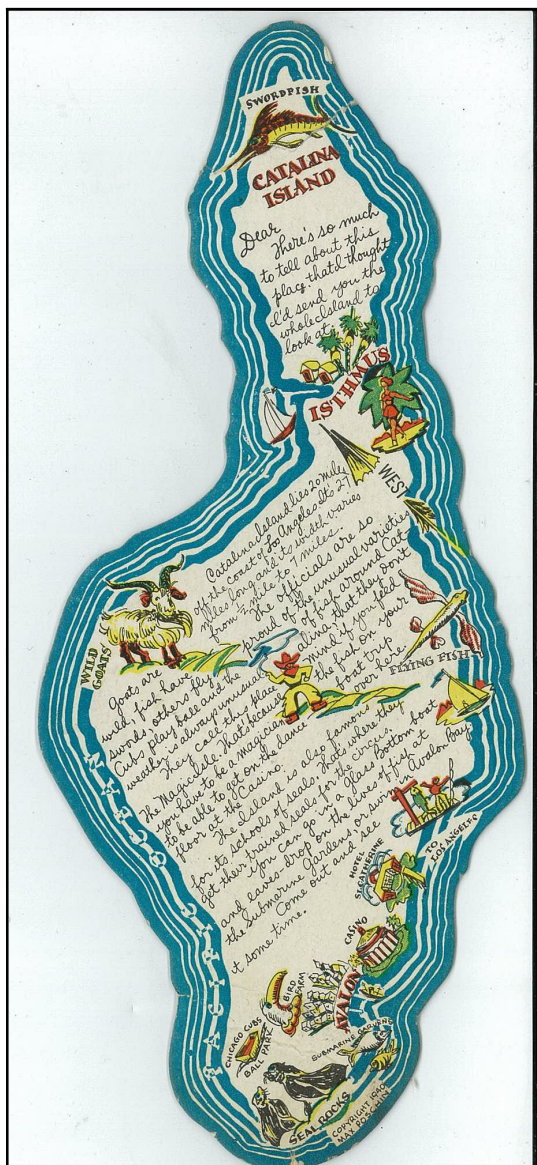 SWORDFISH
CATALINA
ISLAND
Dear
There's so much
to tell about this
place that I'd thought
I'd send you the
whole Island to
look at.
ISTHMUS
WEST
Catalina Island lies 20 miles
off the coast of Los Angeles. It's 27
miles long and its width varies
from ½ mile to 7 miles.
The officials are so
proud of the unusual varieties
of fish around Cat-
alina that they don't
mind if you feed
the fish on your
boat trip
over here.
WILD
GOATS
FLYING FISH
Goats are
wild, fish have
swords, others fly,
Cubs play ball and the
weather is always unusual.
They call this place
The Magic Isle. That's because
you have to be a magician
to be able to get on the dance
floor at the Casino.
The Island is also famous
for its schools of seals. That's where they
get their trained seals for the circus.
You can go in a Glass Bottom boat
and eaves drop on the lives of fish at
the Submarine Gardens or swim in Avalon Bay
Come out and see
it some time.
PACIFIC OCEAN
TO
LOS ANGELES
HOTEL
ST. CATHERINE
CASINO
AVALON
BIRD
FARM
CHICAGO CUBS
BALL PARK
SUBMARINE GARDENS
SEAL ROCKS
COPYRIGHT 1940
MAX POSCHIN